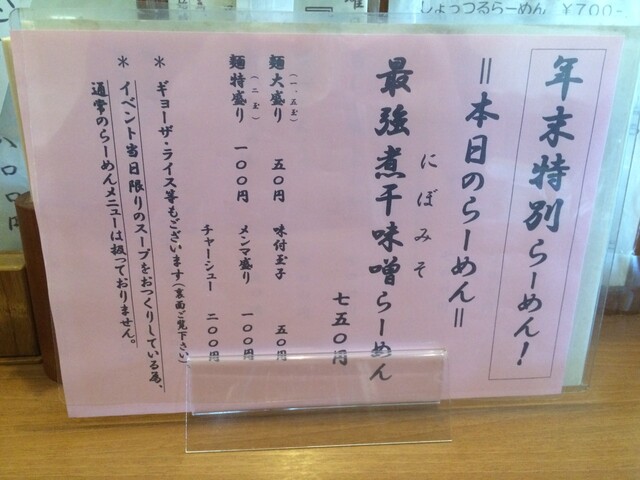 しょっつるらーめん ¥700-
年末特別らーめん!
=本日のらーめん=
にぼみそ
最強煮干味噌らーめん
七五〇円
(一、五玉)
麺大盛り 五〇円 味付玉子 五〇円
(二玉)
麺特盛り 一〇〇円 メンマ盛り 一〇〇円
チャーシュー 二〇〇円
* ギョーザ・ライス等もございます(裏面ご覧下さい)
* イベント当日限りのスープをおつくりしている為、
通常のらーめんメニューは扱っておりません。